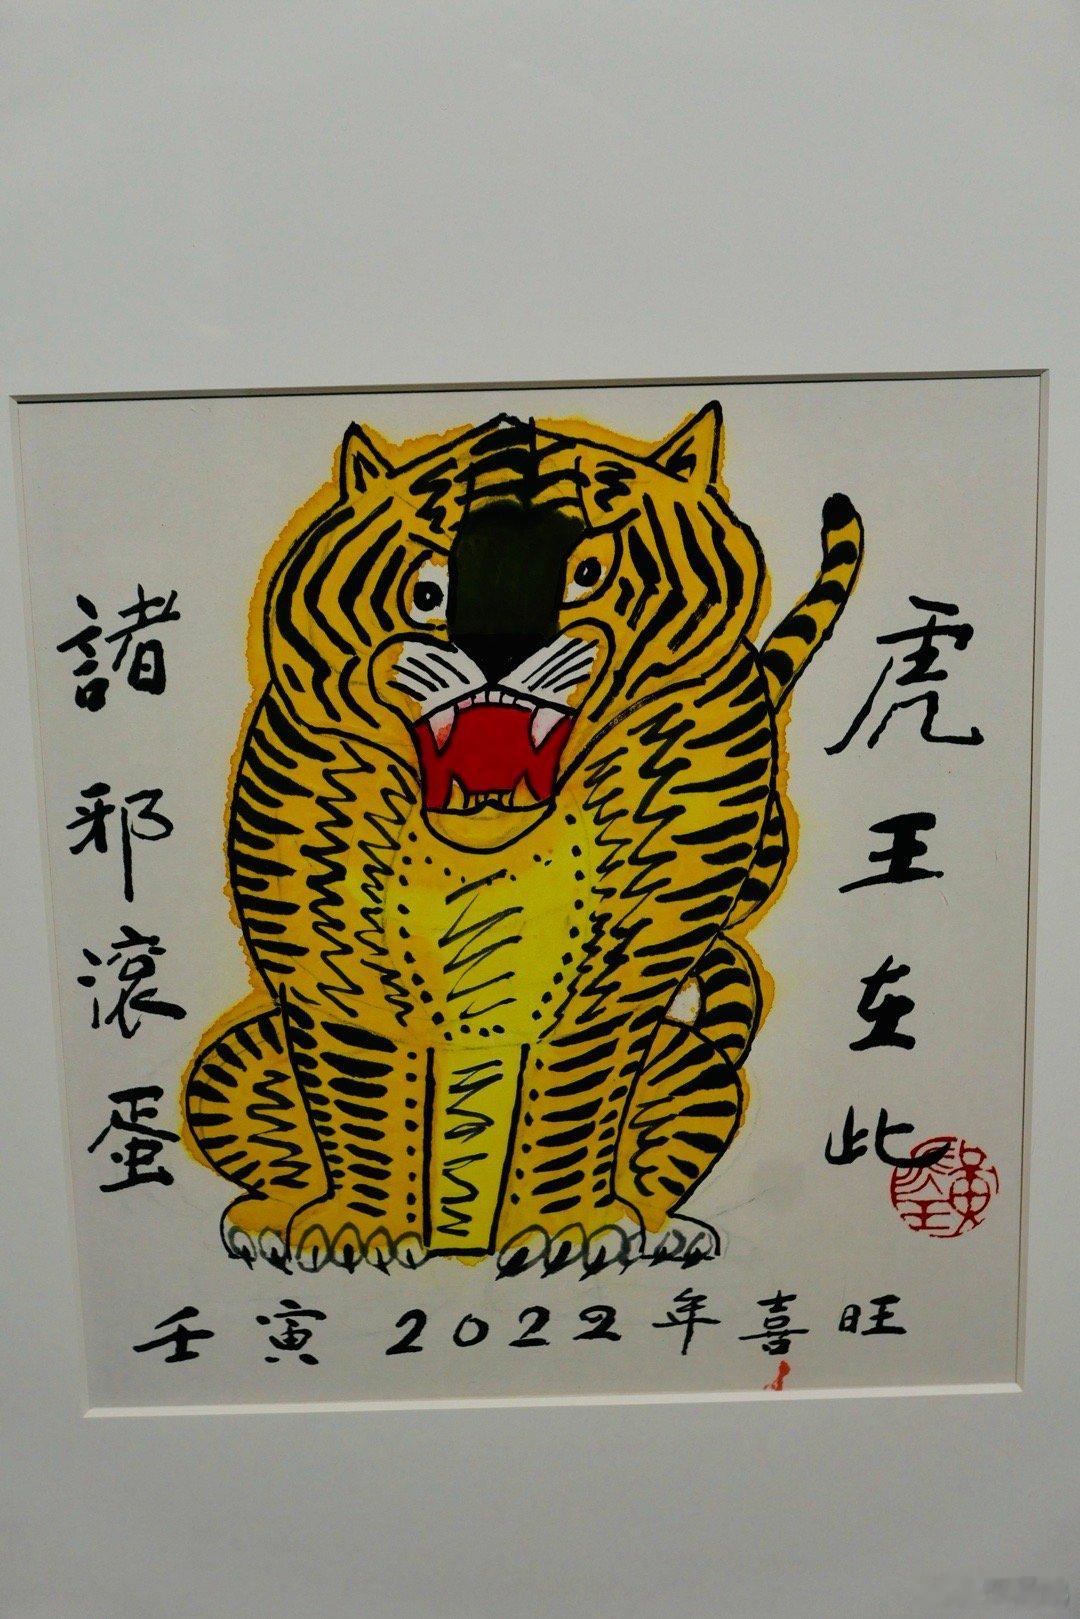 虎王在此
諸邪滾蛋
壬寅2022年喜旺